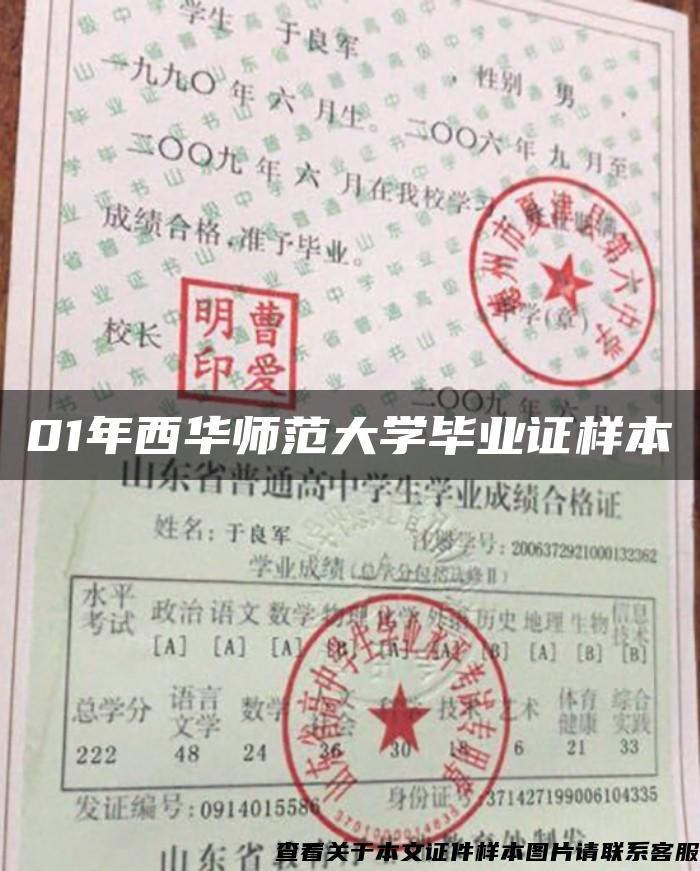 学生 于良军 ,性别 男
一九九〇年 六 月生。二〇〇六年 九 月至
二〇〇九 年 六 月在我校学习
成绩合格,准予毕业。
德州市夏津县第六中学
校长
曹爱明印
中学(章)
二〇〇九 年 六 月
01年西华师范大学毕业证样本
山东省普通高中学生学业成绩合格证
姓名:于良军 注册学号:2006372921000132362
学业成绩(总学分包括选修Ⅱ)
水平考试 政治 语文 数学 物理 化学 外语 历史 地理 生物 信息技术
[A] [A] [A] [B] [A] [B] [A] [B] [B]
总学分 语言文学 数学 科学 技术 艺术 体育健康 综合实践
222 48 24 36 30 18 6 21 33
山东省高中学生学业水平考试专用章
发证编号:0914015586 身份证号:371427199006104335
山东省 制发
查看关于本文证件样本图片请联系客服